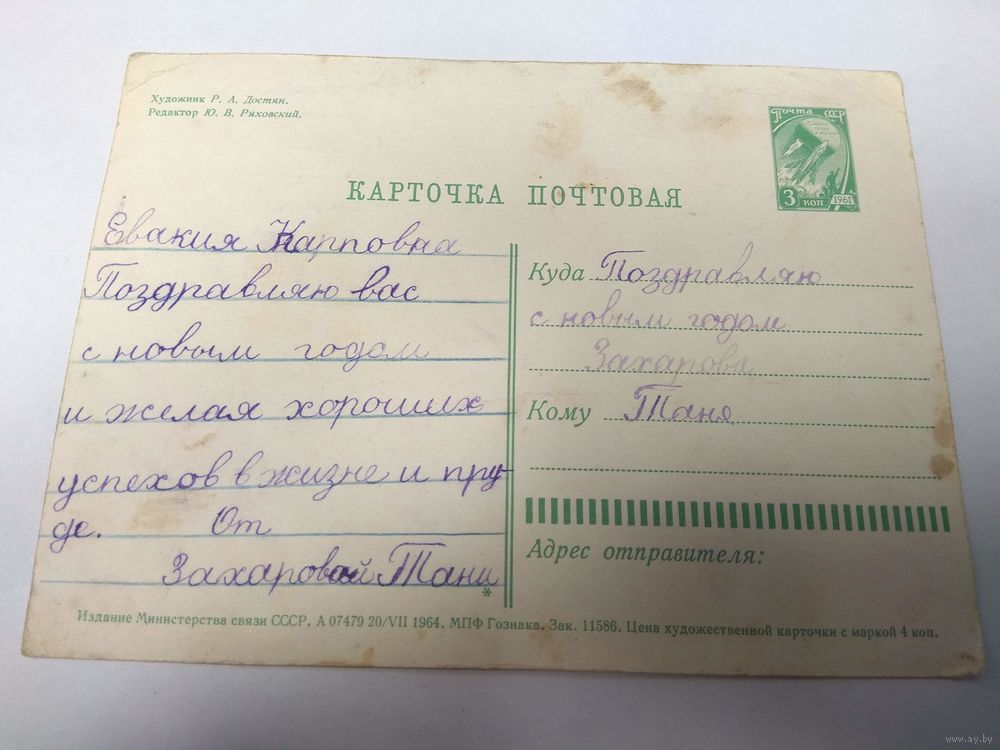 Художник Р. А. Достян.
Редактор Ю. В. Ряховский.
ПОЧТА СССР
3 КОП
1961
КАРТОЧКА ПОЧТОВАЯ
Евакия Карповна
Поздравляю вас
с новым годом
и желая хороших
успехов в жизне и тру-
де. От
Захаровой Тани
*
Куда Поздравляю
с новым годом
Захарова
Кому Таня
Адрес отправителя:
Издание Министерства связи СССР. А 07479 20/VII 1964. МПФ Гознака. Зак. 11586. Цена художественной карточки с маркой 4 коп.
www.ay.by